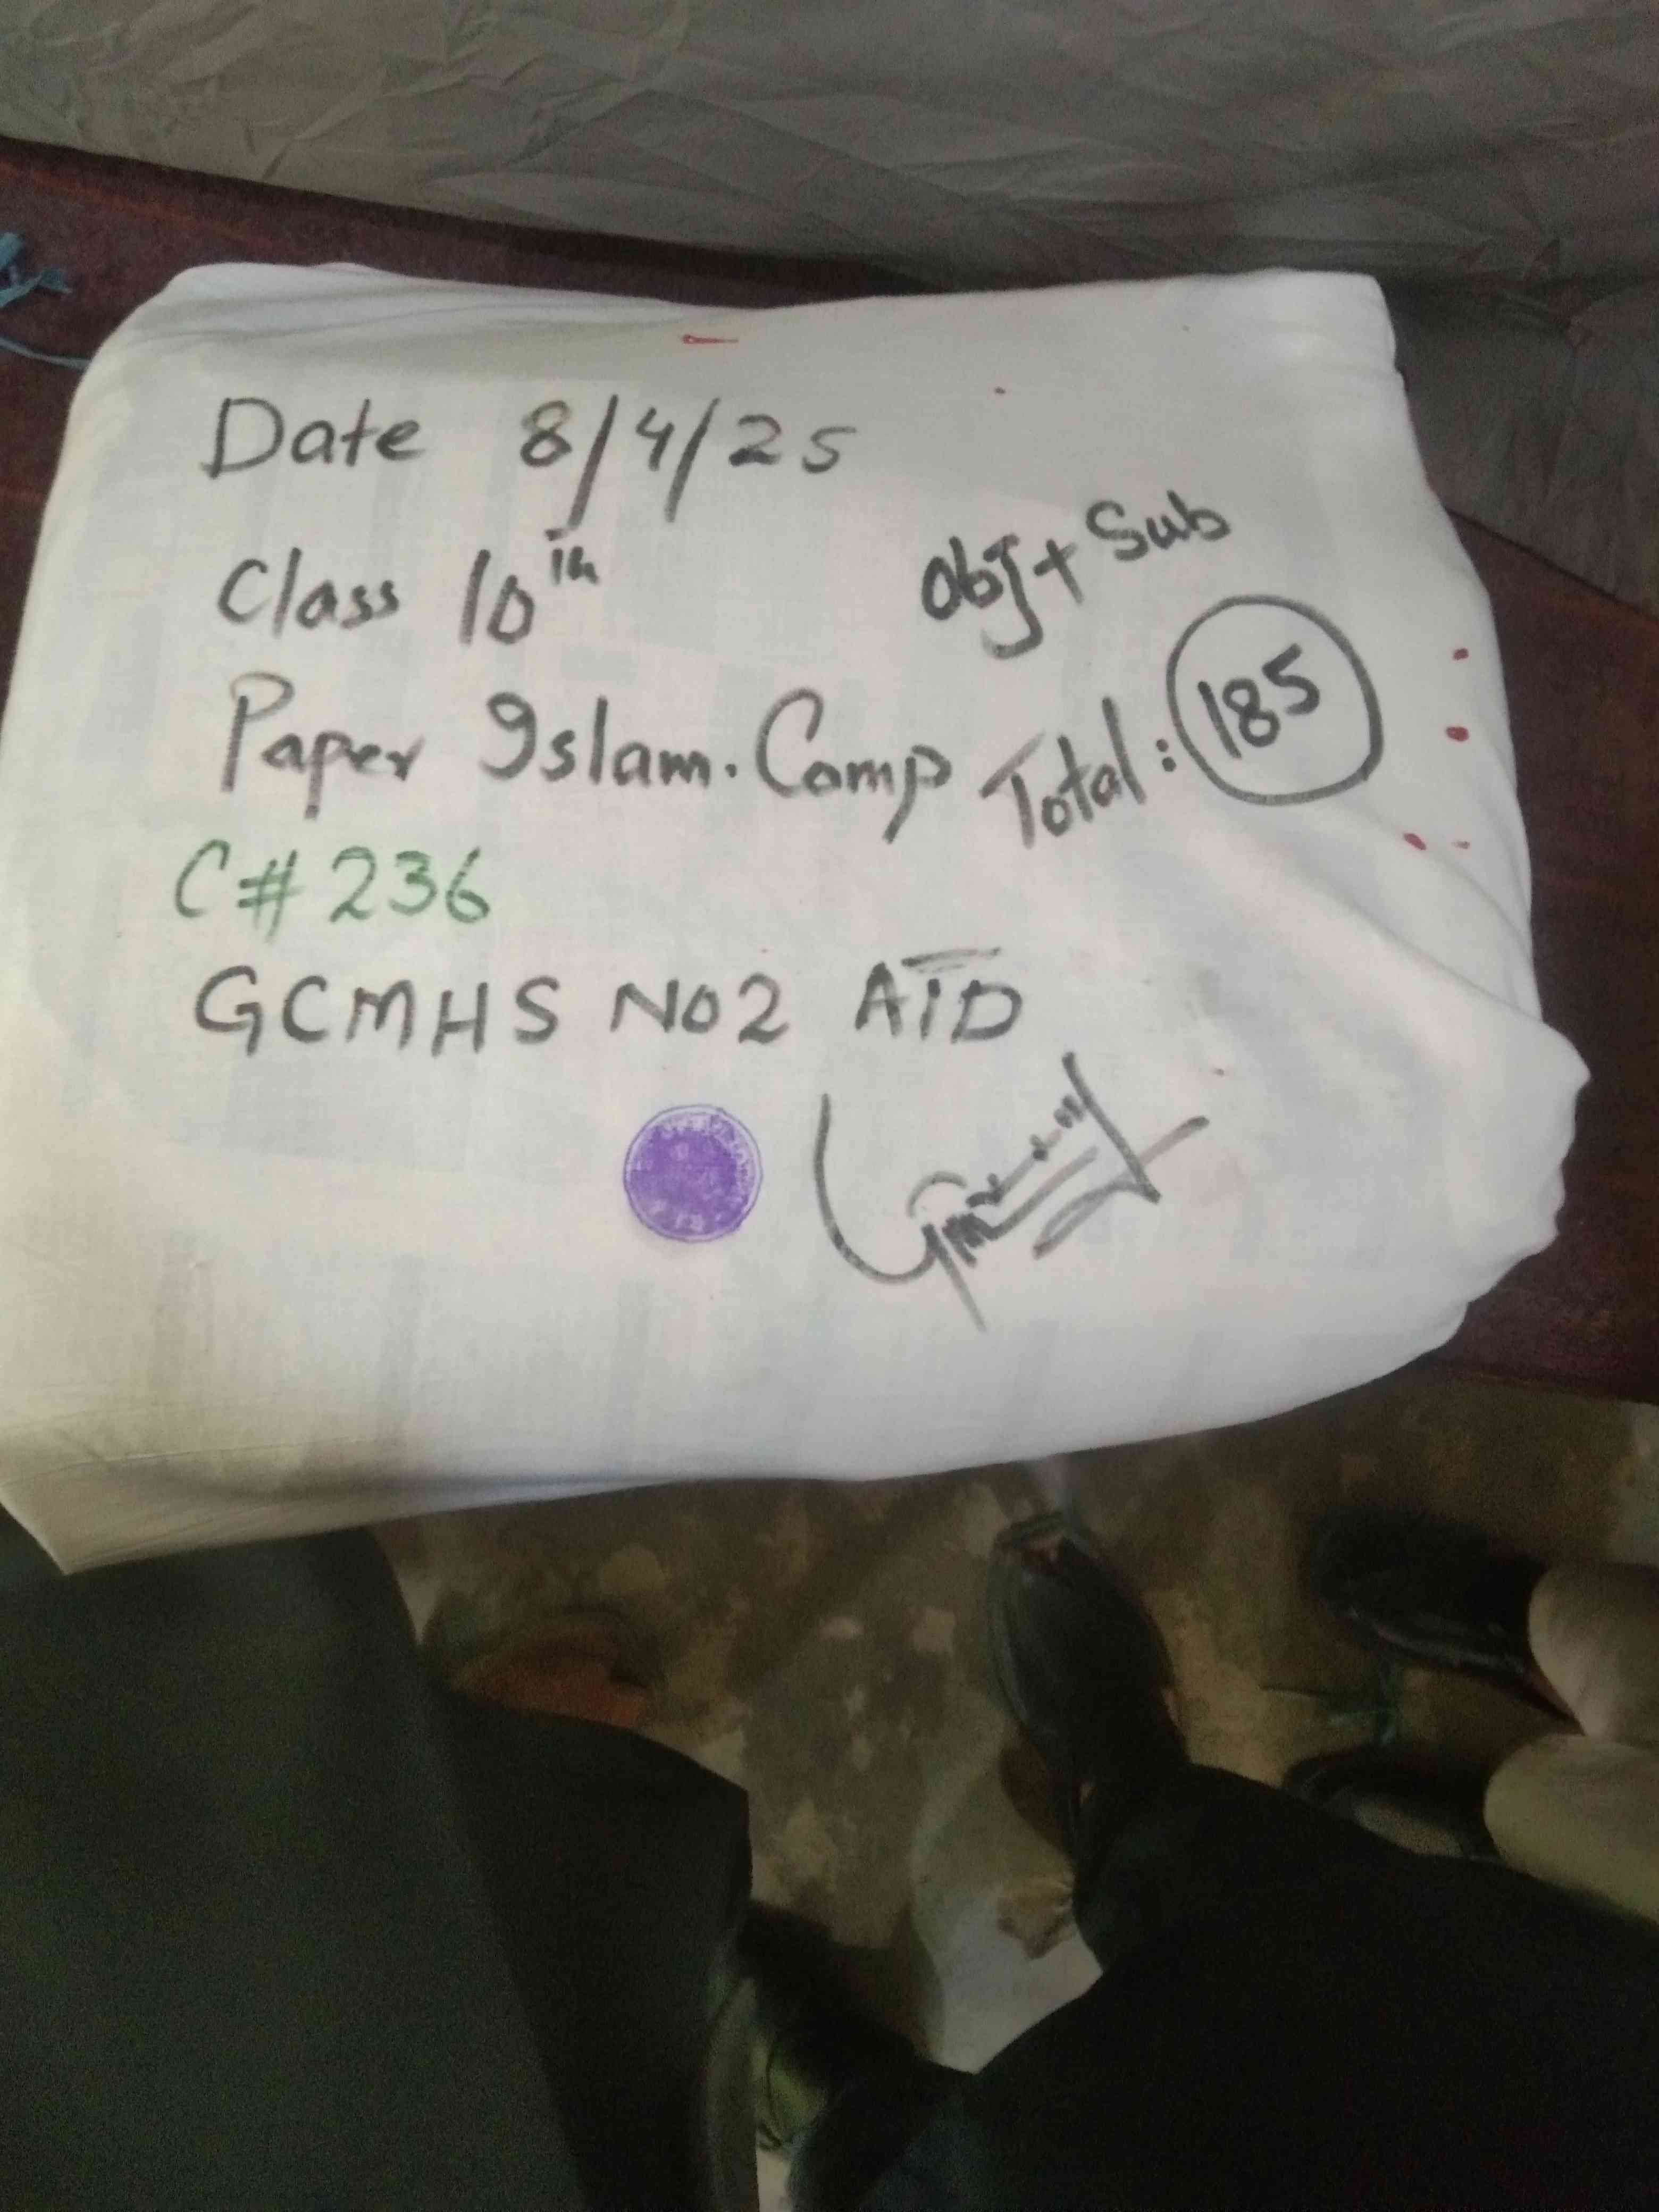 Date 8/4/25
Class 10th
Obj + Sub
Paper Islam. Comp Total: 185
C# 236
GCMHS No 2 ATD